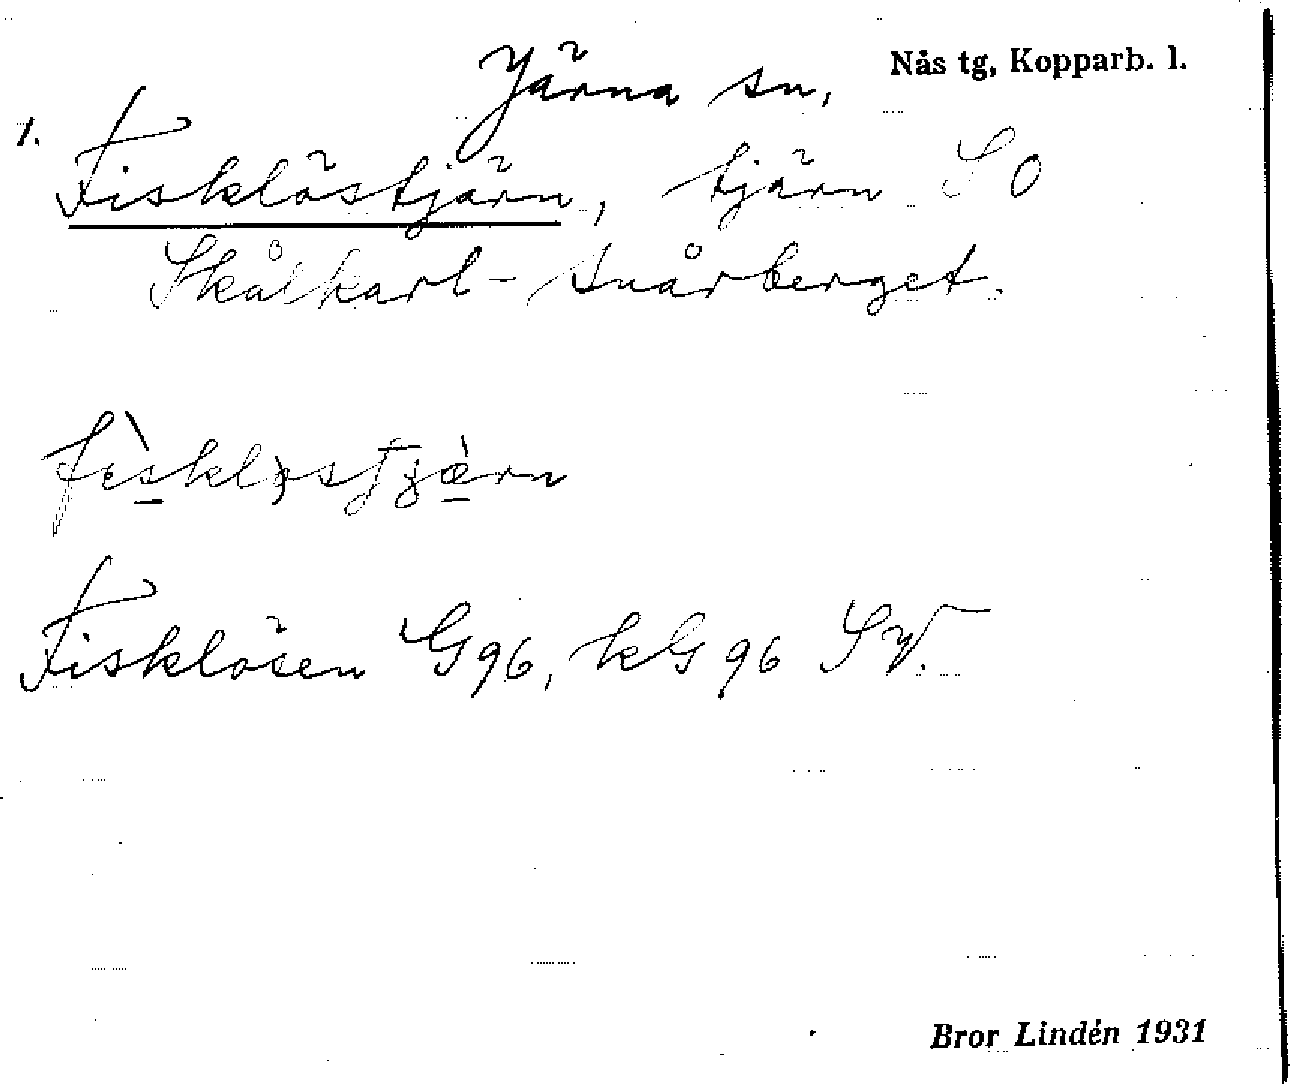 Järna sn,
Nås tg, Kopparb. l.
1.
Fisklöstjärn, tjärn SO
Skålkarl-snårberget.
Fisklösen G96, kG 96 SV.
Bror Lindén 1931